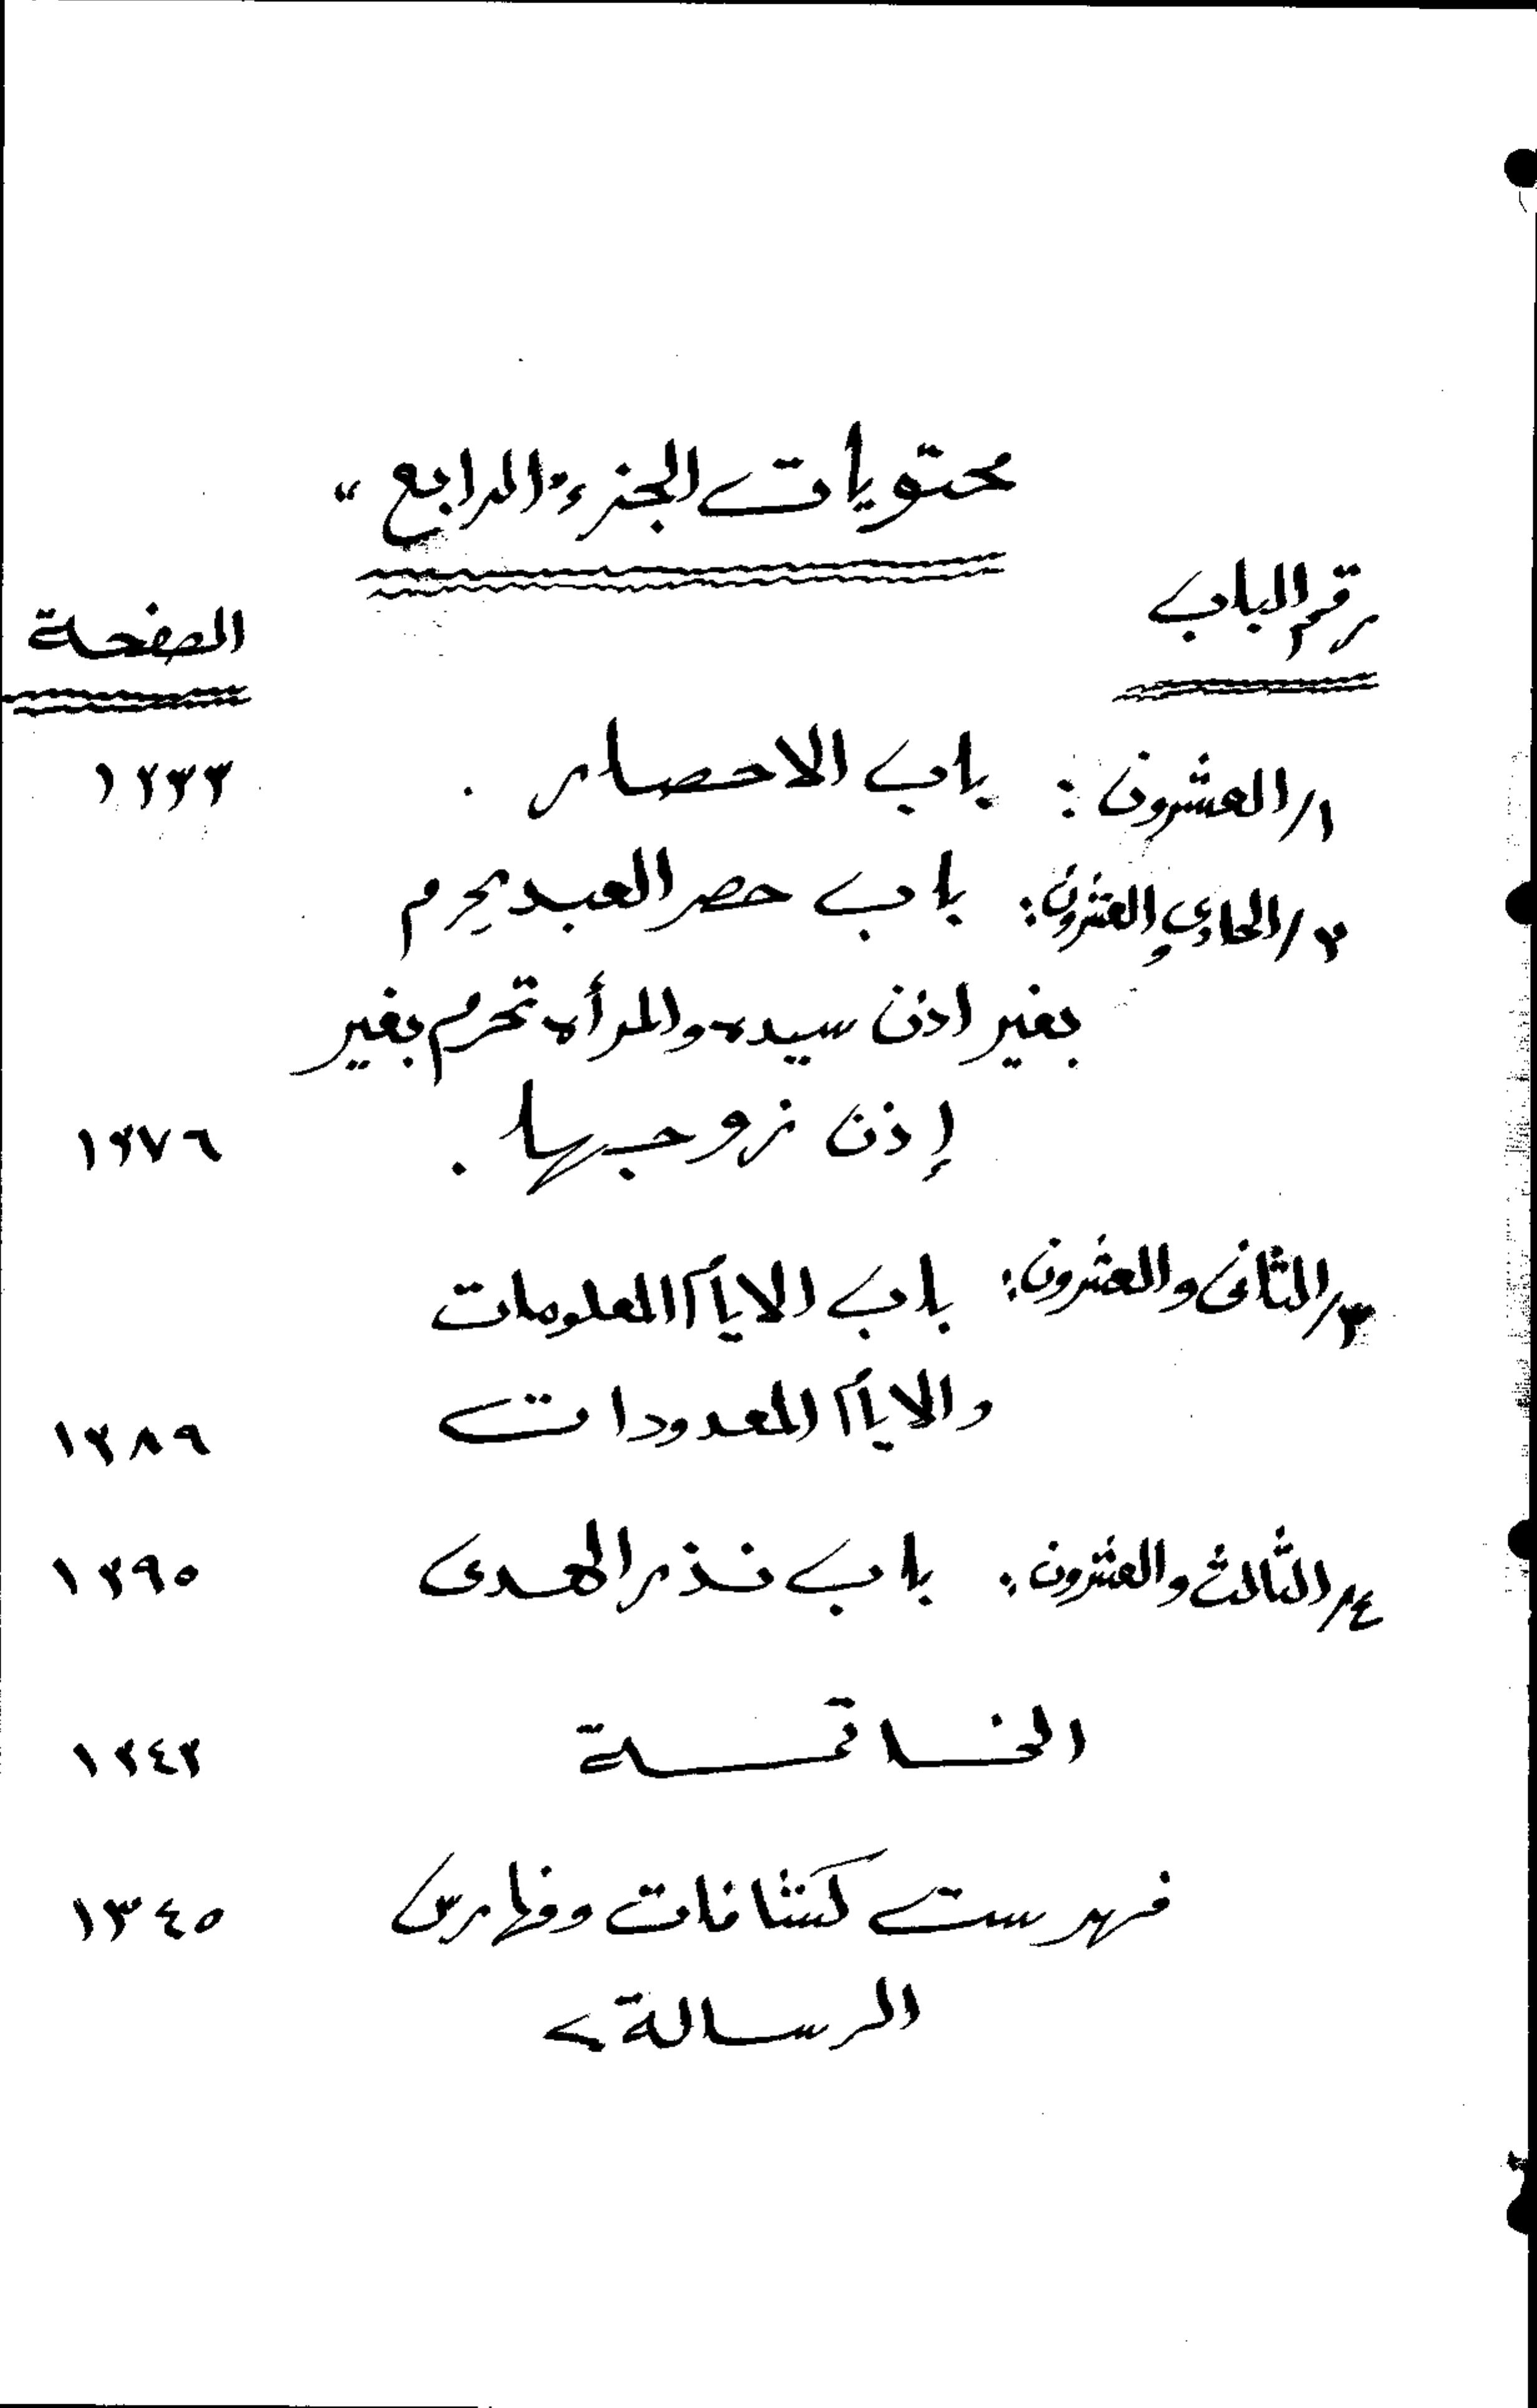 محتويات الجزء "الرابع"
رقم الباب
الصفحة
١/ العشرون : باب الاحصار . ١٢٣٣
٢/ الحادي والعشرون: باب حصر العبد يحرم
بغير اذن سيده والمرأه تحرم بغير
إذن زوجها . ١٢٧٦
٣/ الثانى والعشرون: باب الايام المعلومات
والايام المعدودات ١٢٨٩
٤/ الثالث والعشرون: باب نذر الهدى ١٢٩٥
الخاتمة
فهرست كشافات وفهارس ١٣٤٥
الرسالة